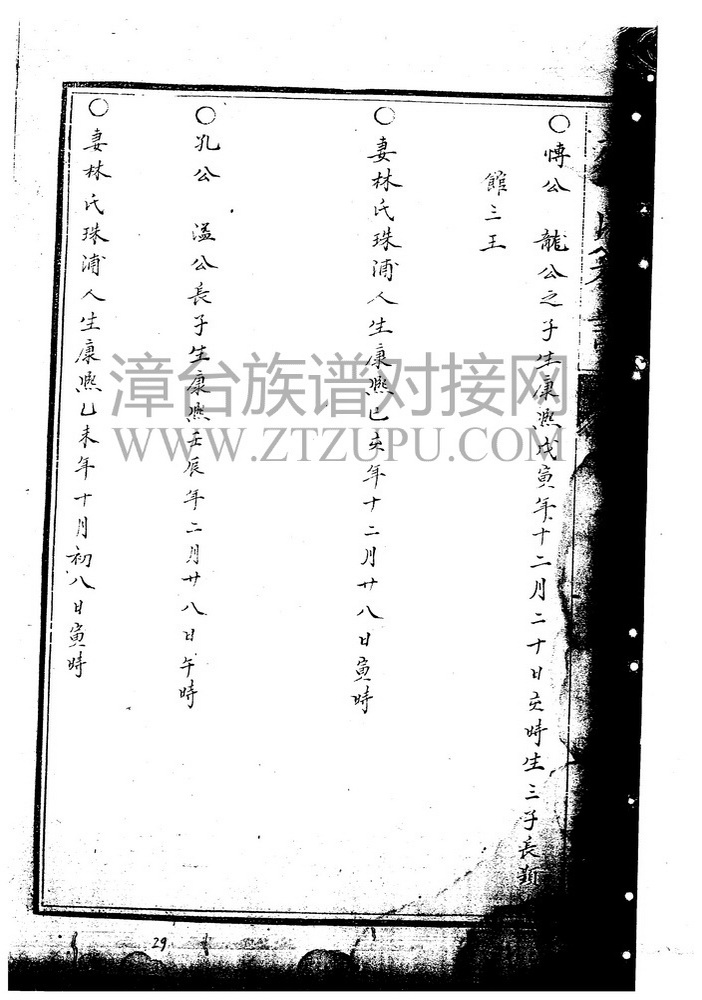 ○慱公　龍公之子生康熙戊寅年十二月二十日亥時生三子長斱
館三王
○妻林氏珠浦人生康熙己亥年十二月廿八日寅時
○孔公　溢公長子生康熙壬辰年二月廿八日午時
○妻林氏珠浦人生康熙乙未年十月初八日寅時
漳台族谱对接网
WWW.ZTZUPU.COM
29